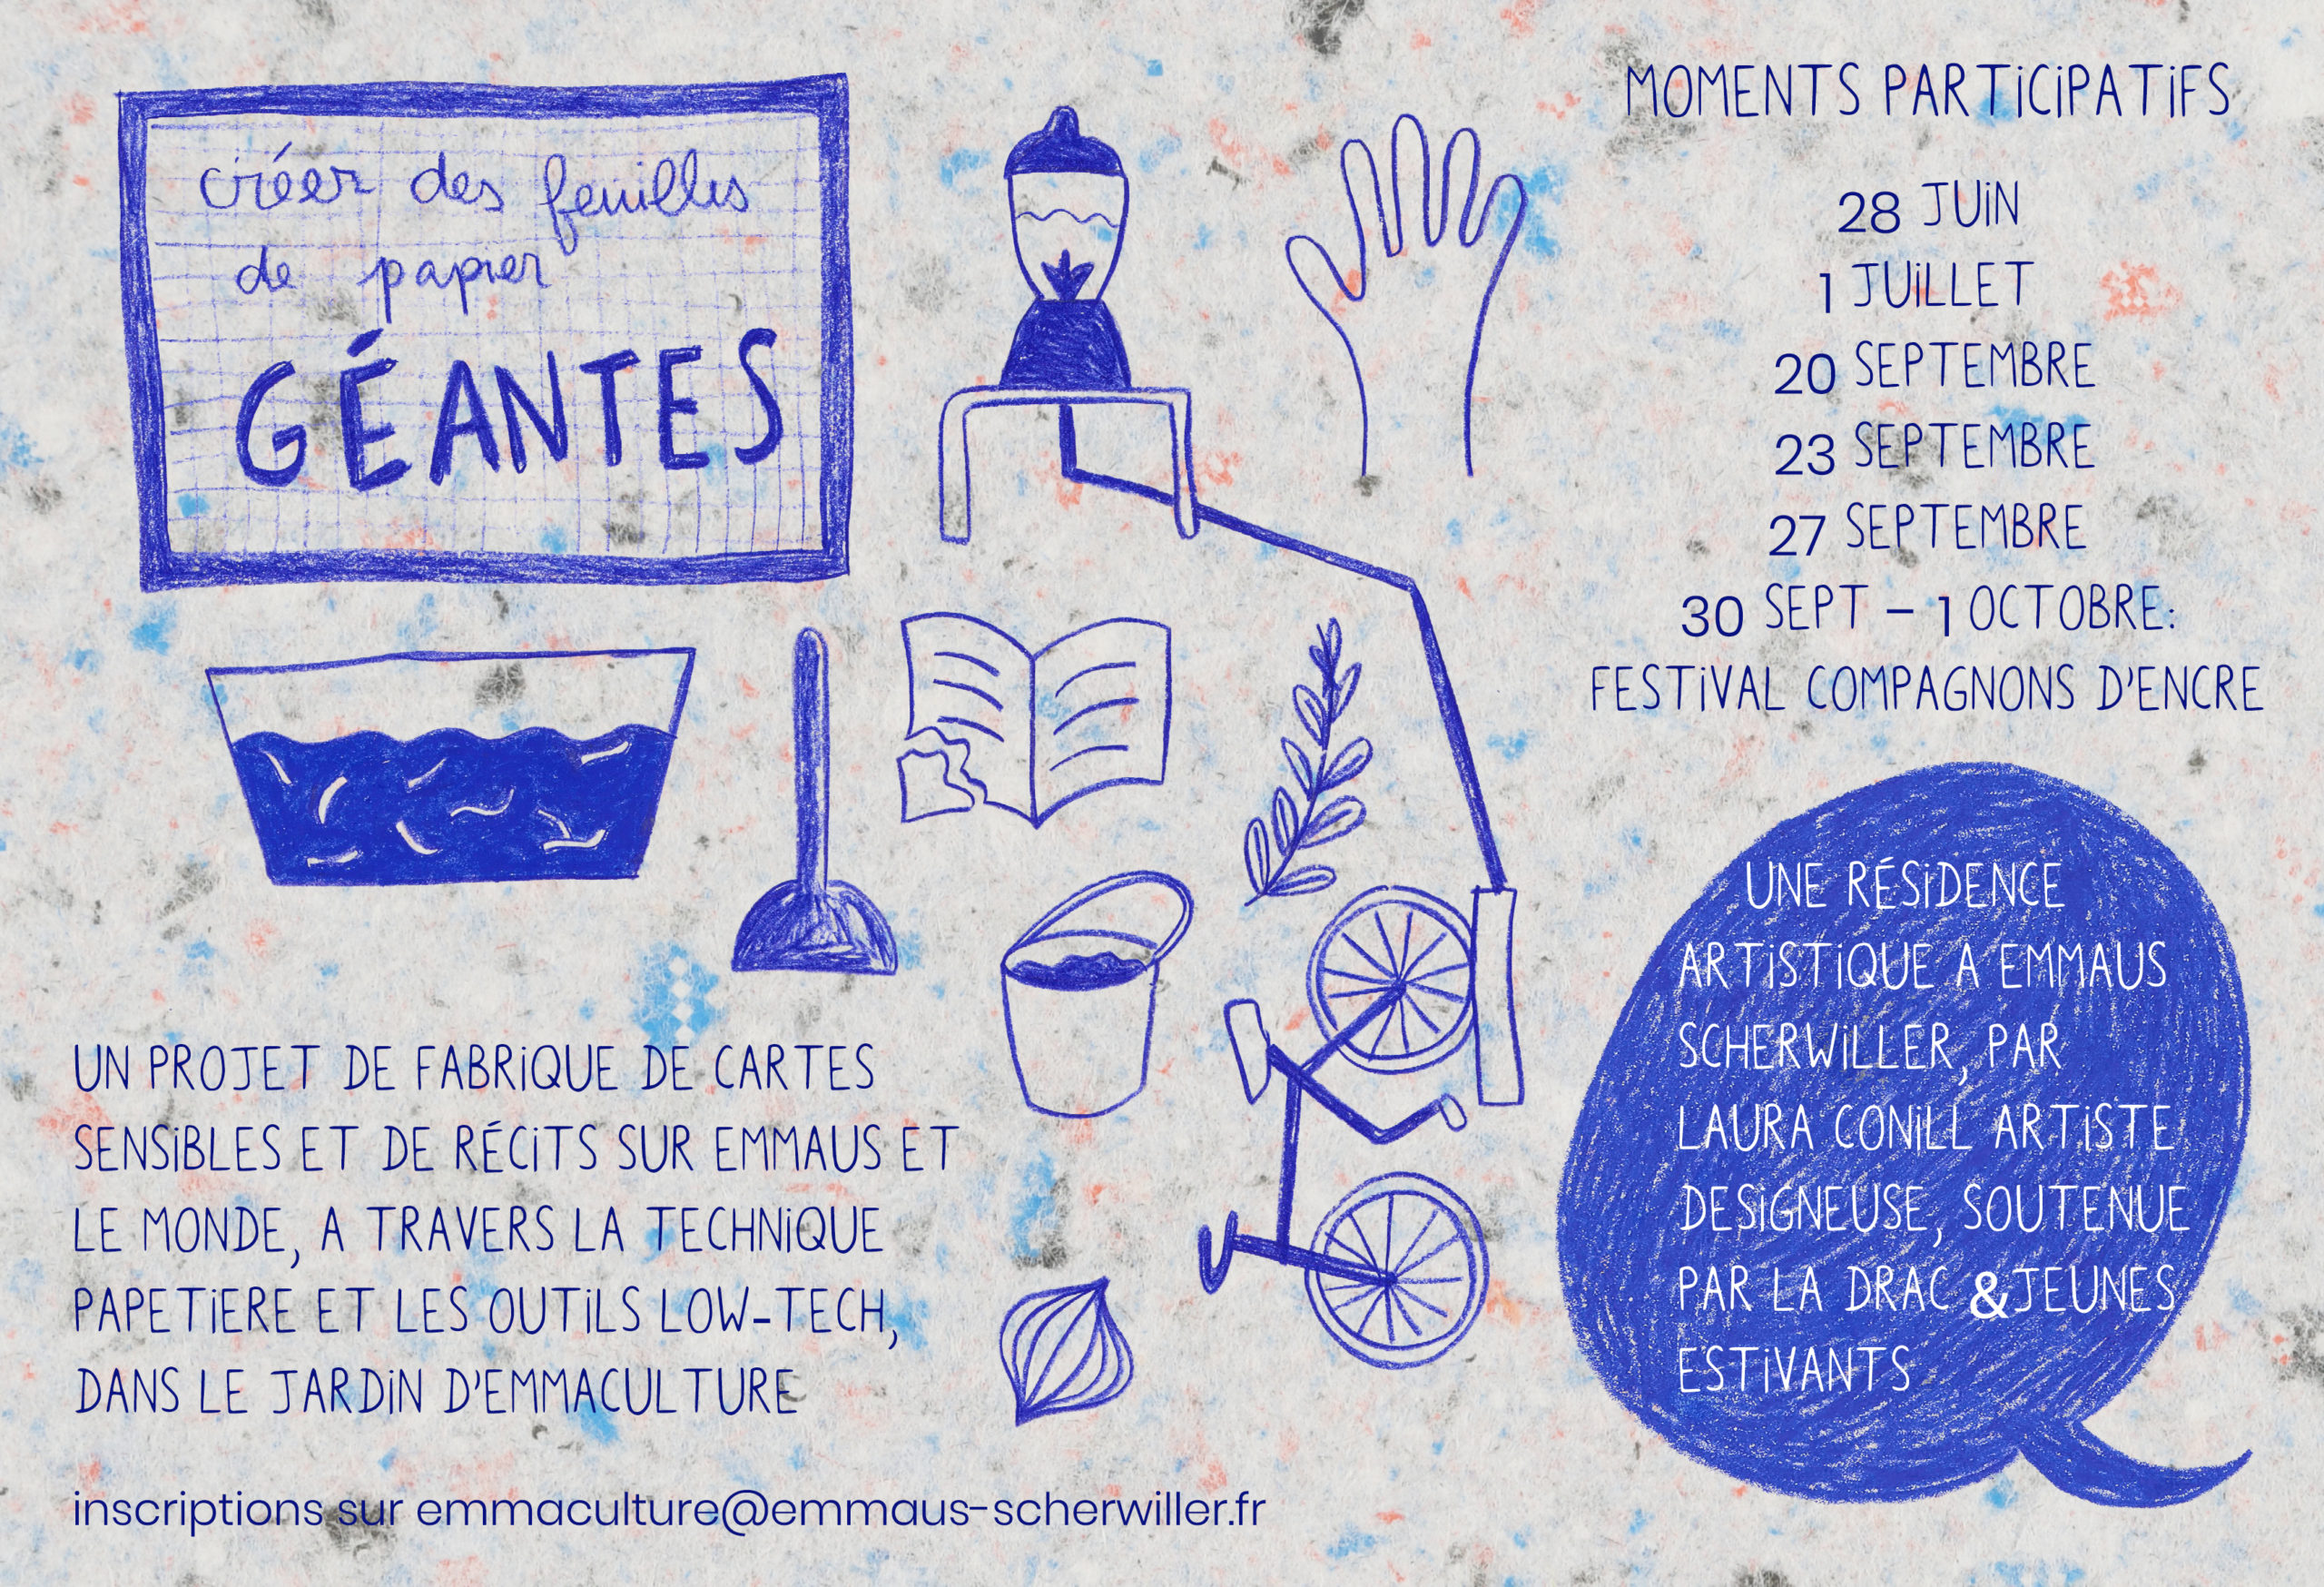 créer des feuilles
de papier
GÉANTES
MOMENTS PARTICIPATIFS
28 JUIN
1 JUILLET
20 SEPTEMBRE
23 SEPTEMBRE
27 SEPTEMBRE
30 SEPT - 1 OCTOBRE:
FESTIVAL COMPAGNONS D'ENCRE
UN PROJET DE FABRIQUE DE CARTES
SENSIBLES ET DE RÉCITS SUR EMMAUS ET
LE MONDE, A TRAVERS LA TECHNIQUE
PAPETIERE ET LES OUTILS LOW-TECH,
DANS LE JARDIN D'EMMACULTURE
UNE RÉSIDENCE
ARTISTIQUE A EMMAUS
SCHERWILLER, PAR
LAURA CONILL ARTISTE
DESIGNEUSE, SOUTENUE
PAR LA DRAC &JEUNES
ESTIVANTS
inscriptions sur emmaculture@emmaus-scherwiller.fr